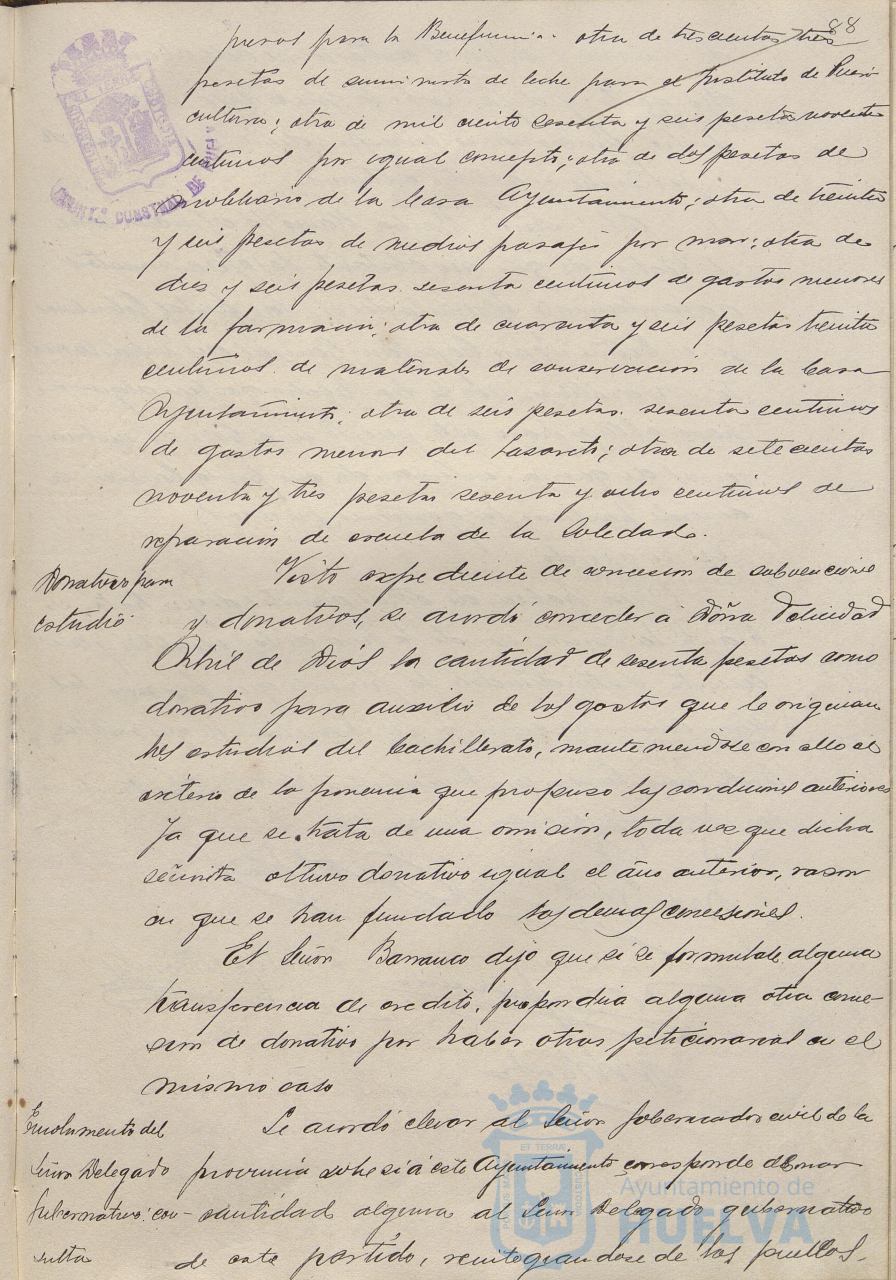 88
presos para la Beneficencia. otra de trescientas tres
pesetas de suministro de leche para el Instituto de Pueri
cultura; otra de mil ciento sesenta y seis pesetas noventa
centimos por igual concepto; otra de dos pesetas de
mobiliario de la Casa Ayuntamiento; otra de treinta
y seis pesetas de medios pasajes por mar; otra de
diez y seis pesetas sesenta centimos de gastos menores
de la farmacia; otra de cuarenta y seis pesetas treinta
centimos de materiales de conservacion de la Casa
Ayuntamiento; otra de seis pesetas sesenta centimos
de gastos menores del Lazareto; otra de setecientas
noventa y tres pesetas sesenta y ocho centimos de
reparacion de escuela de la Soledad.
Donativo para
estudio
Visto expediente de concesion de subvenciones
y donativos, se acordó conceder á Doña Felicidad
de Dios la cantidad de sesenta pesetas como
donativo para auxilio de los gastos que le originan
los estudios del bachillerato, manteniendose con ello el
criterio de la ponencia que propuso las condiciones anteriores
Ya que se trata de una omision, toda vez que dicha
señorita obtuvo donativo igual el año anterior, razon
en que se han fundado las demas concesiones.
El Señor Barranco dijo que si se formulase alguna
transferencia de credito, propondria alguna otra conce-
sion de donativo por haber otras peticionarias en el
mismo caso
Emolumento del
Señor Delegado
Gubernativo: con-
sulta
Se acordó elevar al Señor Gobernador civil de la
provincia sobre si á este Ayuntamiento corresponde abonar
cantidad alguna al Señor Delegado gubernativo
de este partido, reintegrandose de los pueblos,
ET TERRAE
Ayuntamiento de
HUELVA